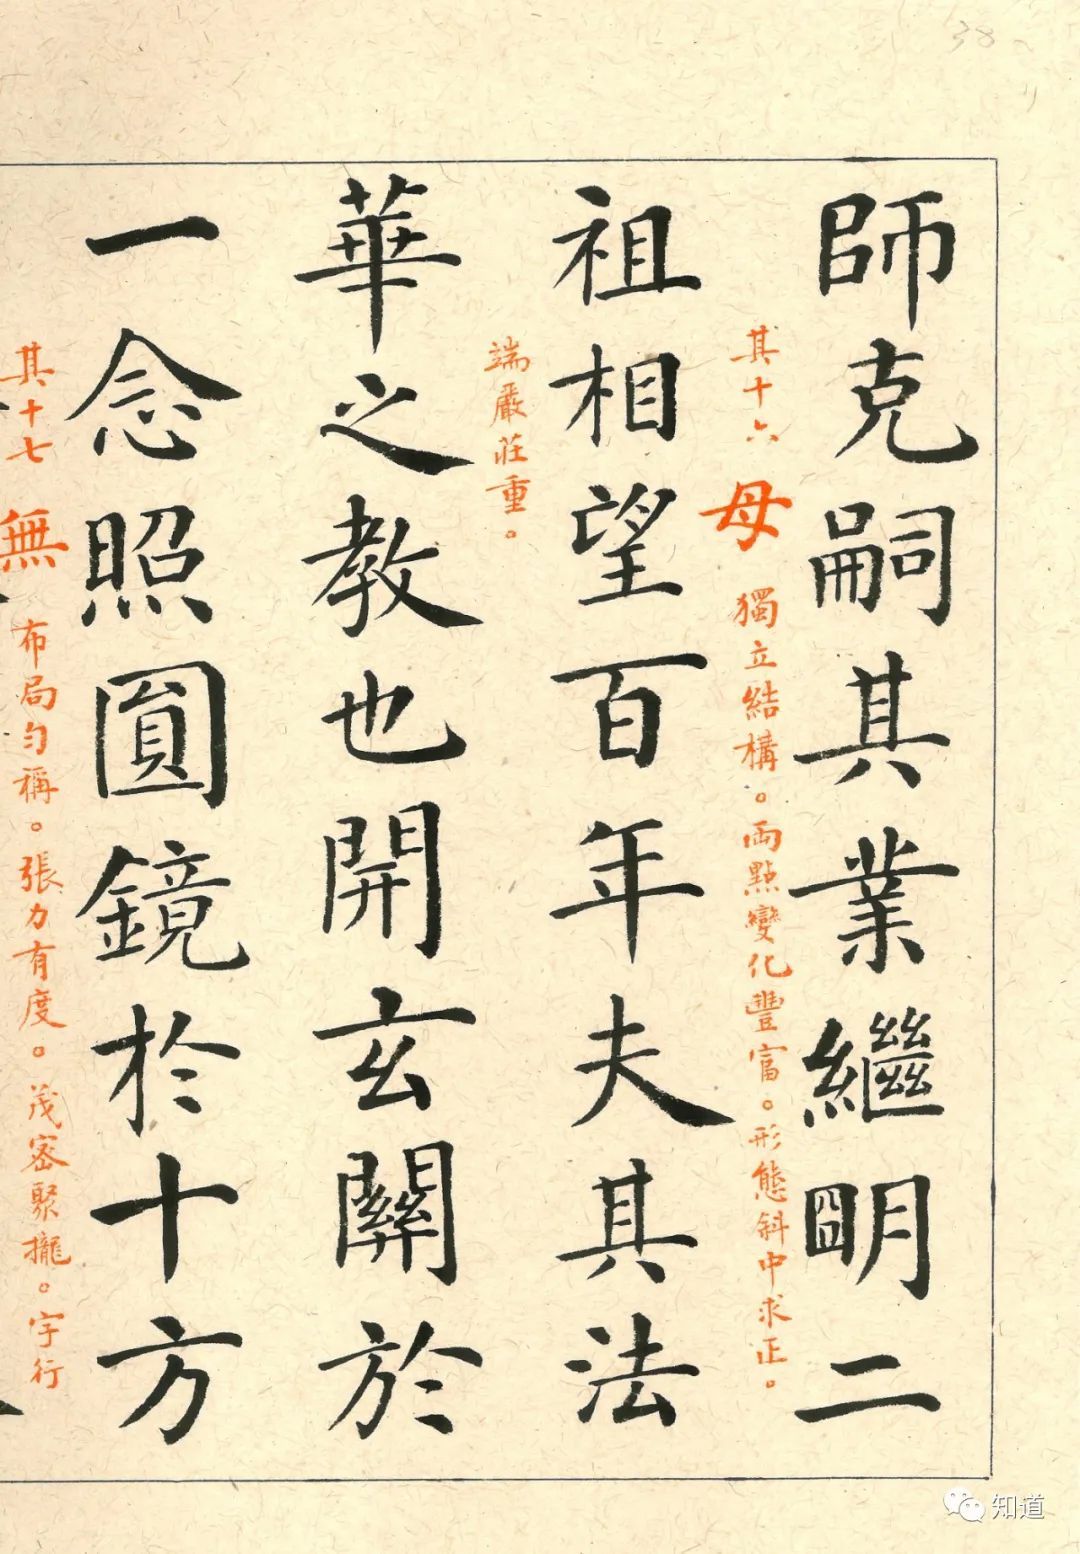 38
師克嗣其業繼朙二
其十六 母 獨立結構。兩點變化豐富。形態斜中求正。
祖相望百年夫其法
端嚴莊重。
華之教也開玄關於
一念照圓鏡於十方
其十七 無 布局勻稱。張力有度。茂密聚攏。字行
知道